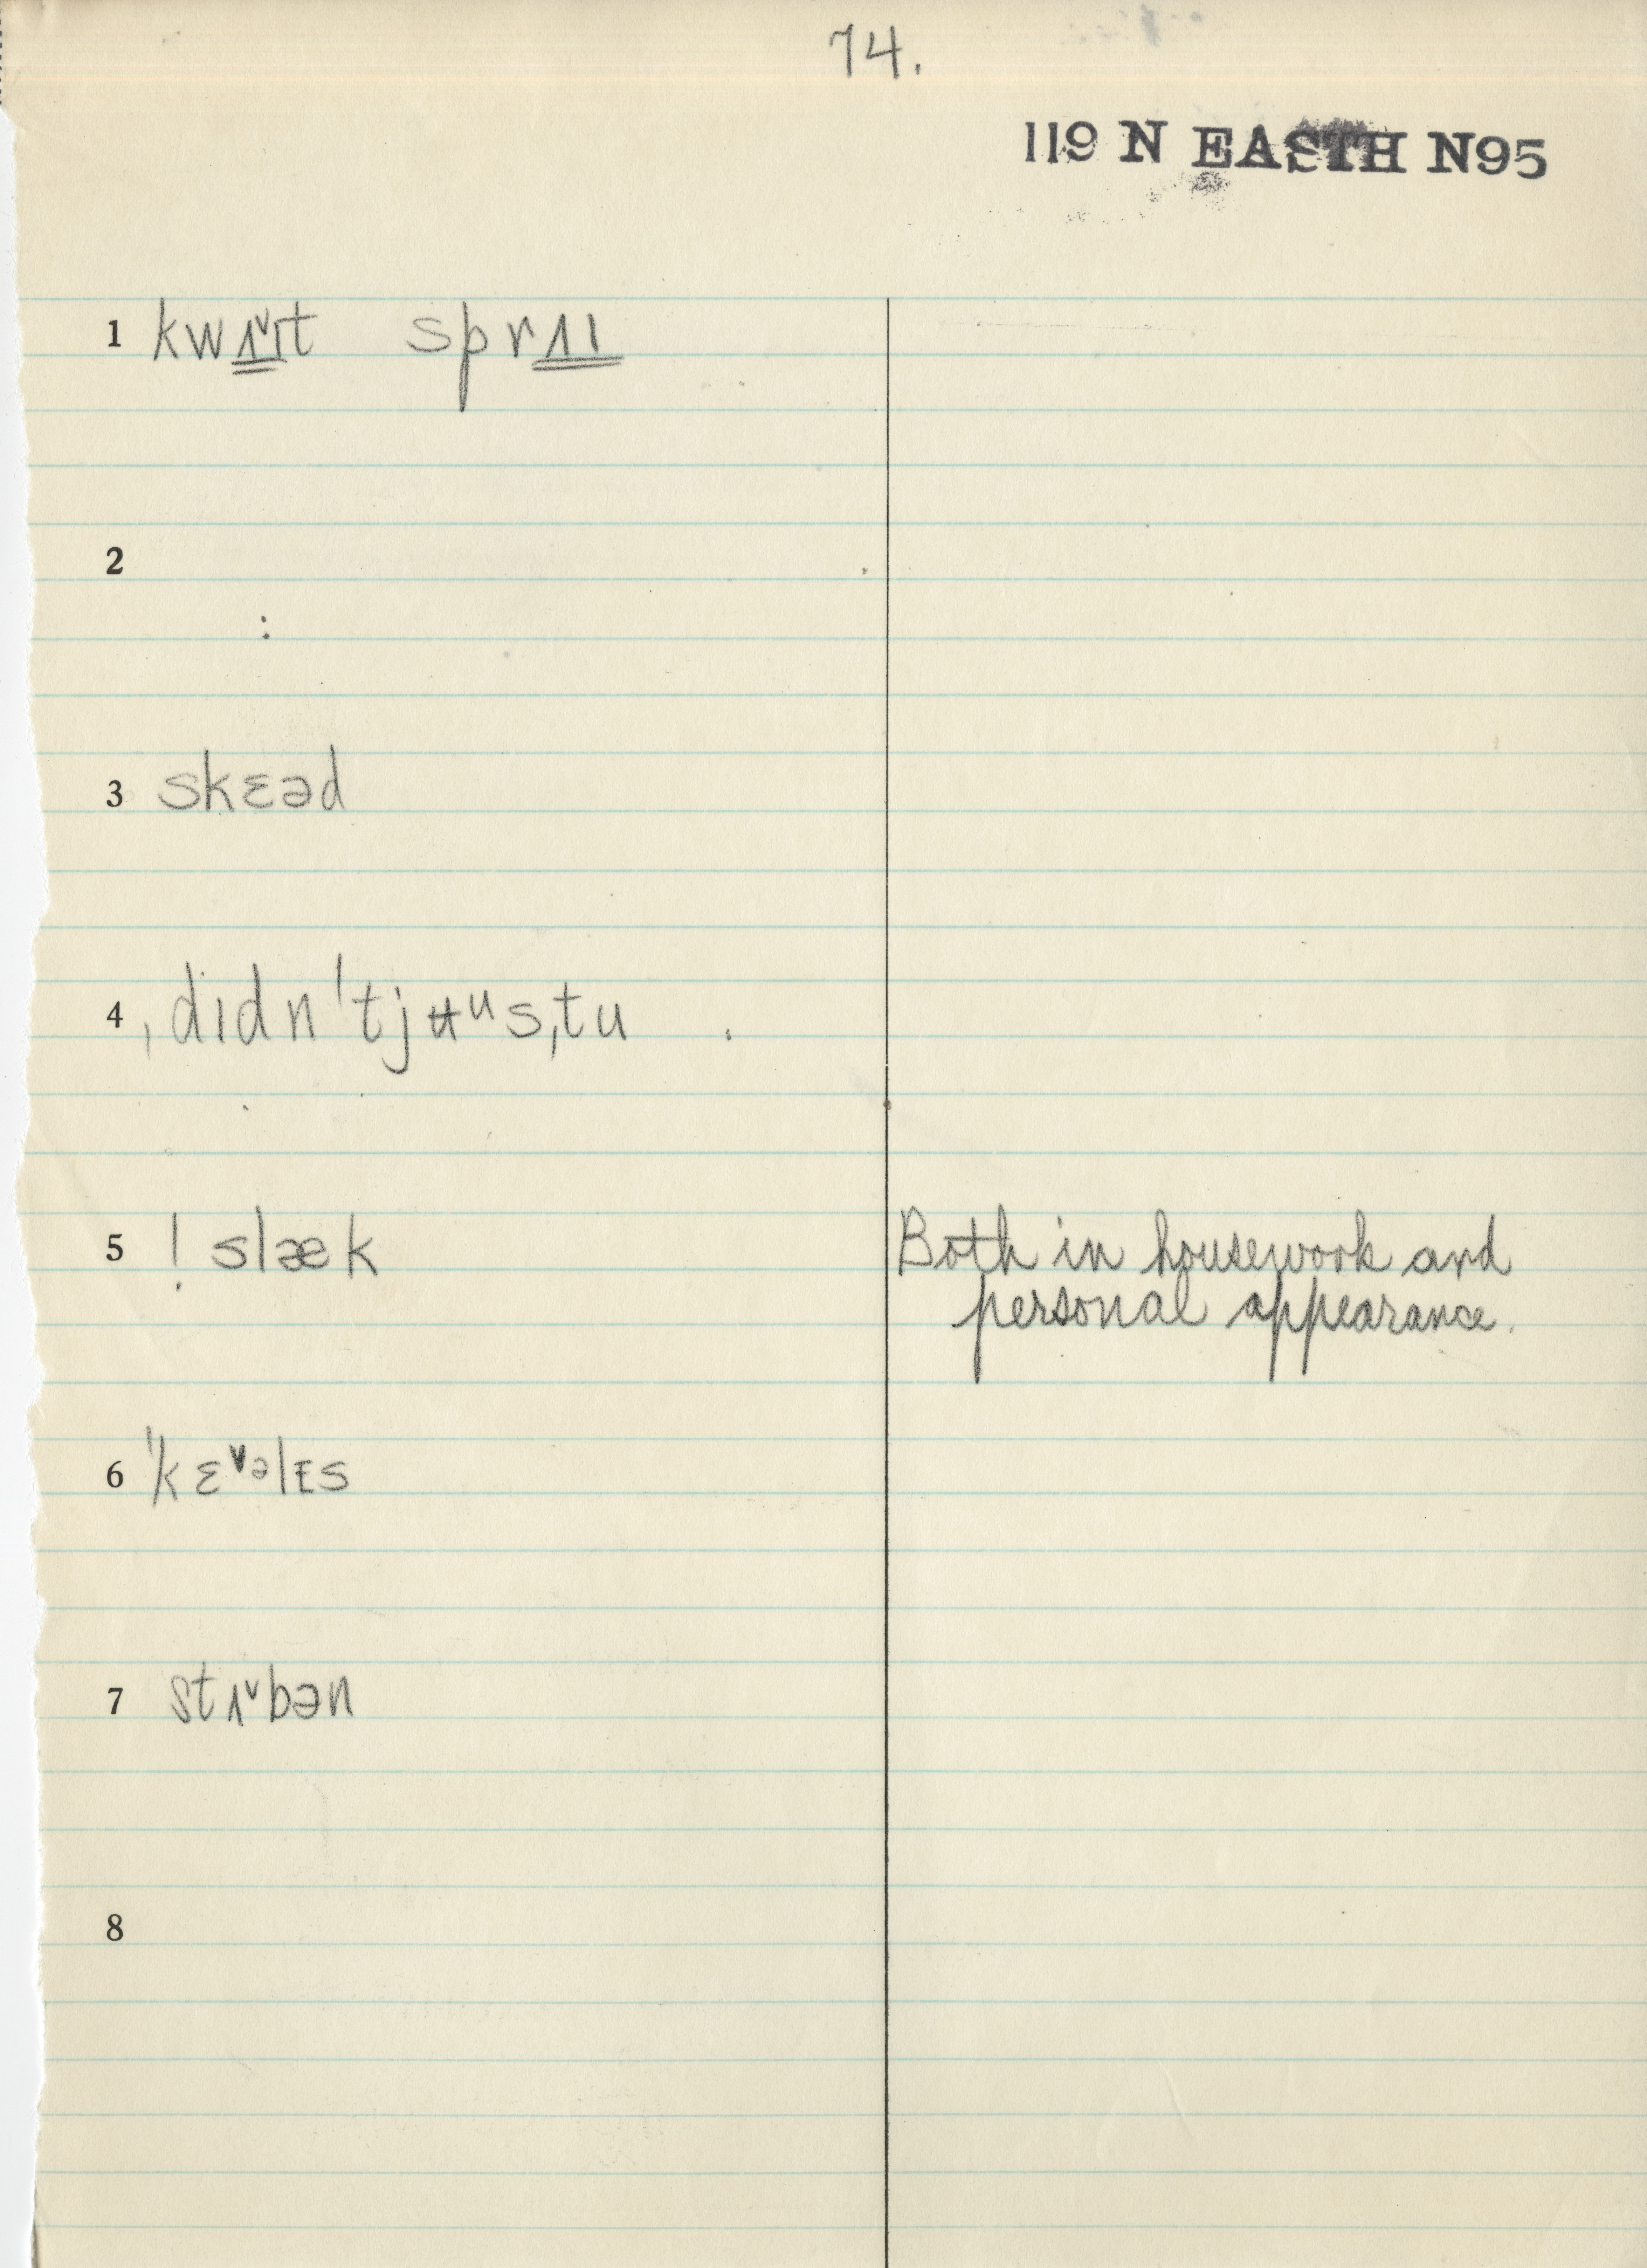 74.
119 N EASTH N95
1 kwʌ˅ɪt sprʌɪ
2
:
3 skɛəd
4 ˌdɪdnˈtjʉᵘsˌtu
5 ! slæk Both in housework and
personal appearance.
6 ˈkɛ˅ᵊlɪs
7 stʌ˅bən
8